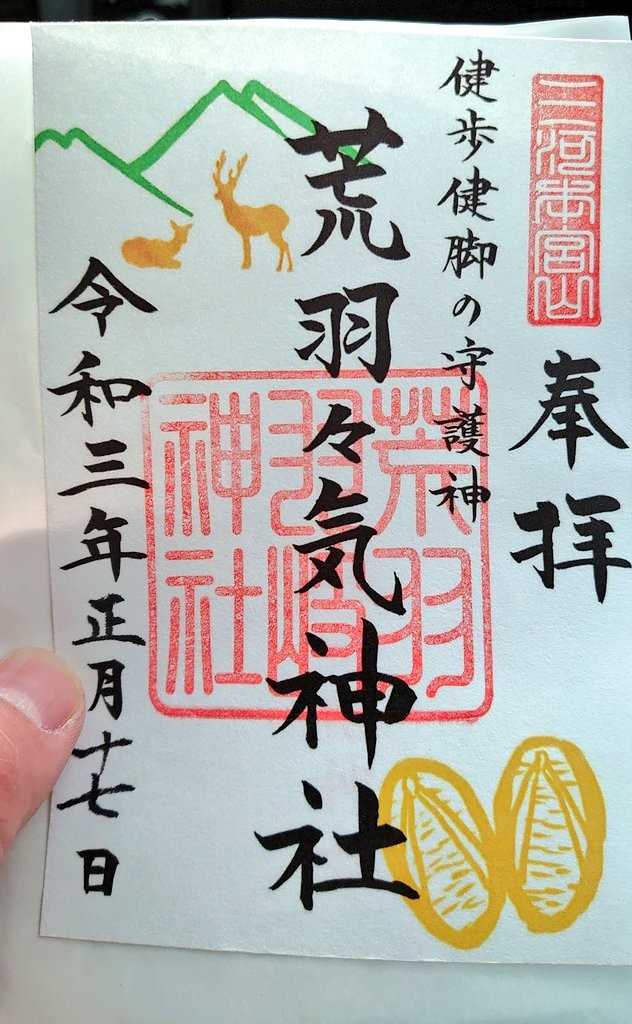 三河本宮山
奉拝
健歩健脚の守護神
荒羽々気神社
荒羽
羽
神社
令和三年正月十七日